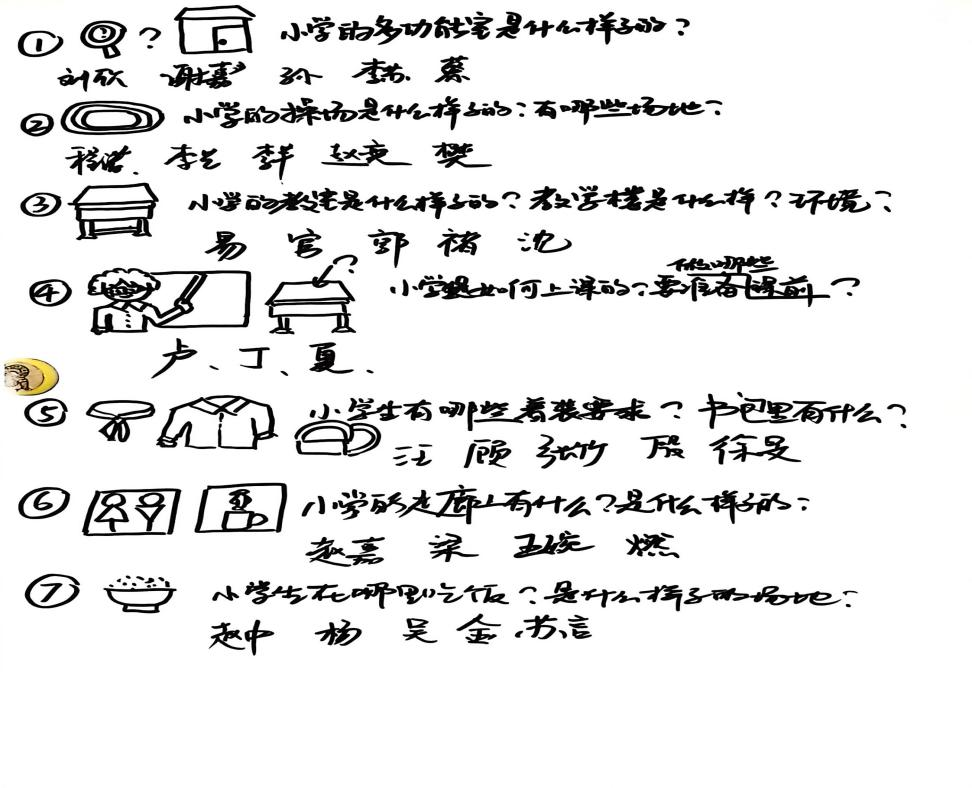 ① ? 小学的多功能室是什么样子的？
刘欣 谢嘉 孙 李苏 蔡
② 小学的操场是什么样子的？有哪些场地？
程诺. 李兰 李芊 赵奕 樊
③ 小学的教室是什么样子的？教学楼是什么样？环境？
易 官 郭 褚 沈
? 做哪些
④ 小学是如何上课的？要准备课前？
卢、丁、夏.
⑤ 小学生有哪些着装要求？书包里有什么？
汪 顾 张竹 殷 徐旻
⑥ 小学的走廊上有什么？是什么样子的？
赵嘉 梁 王琬 燃
⑦ 小学生在哪里吃饭？是什么样子的场地？
赵中 杨 吴 金 苏言